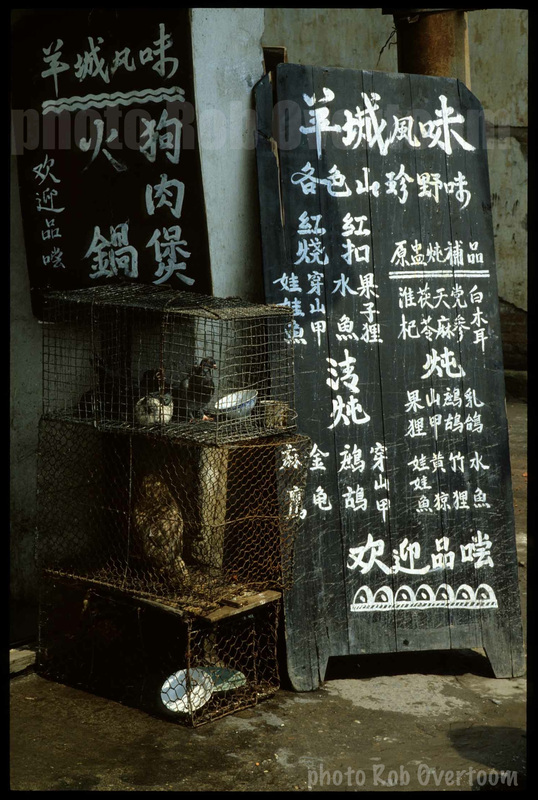 羊城风味
狗肉煲
火鍋
欢迎品嚐
羊城風味
各色山珍野味
红扣
红燒
果子狸
水魚
穿山甲
娃娃魚
清炖
穿山甲
鹧鸪
金龟
麻鹰
原盅炖補品
白木耳
党参
天麻
茯苓
淮杞
炖
乳鸽
鹧鸪
山甲
果狸
水魚
竹狸
黄猄
娃娃魚
欢迎品嚐
photo Rob Overtoom
photo Rob Overtoom